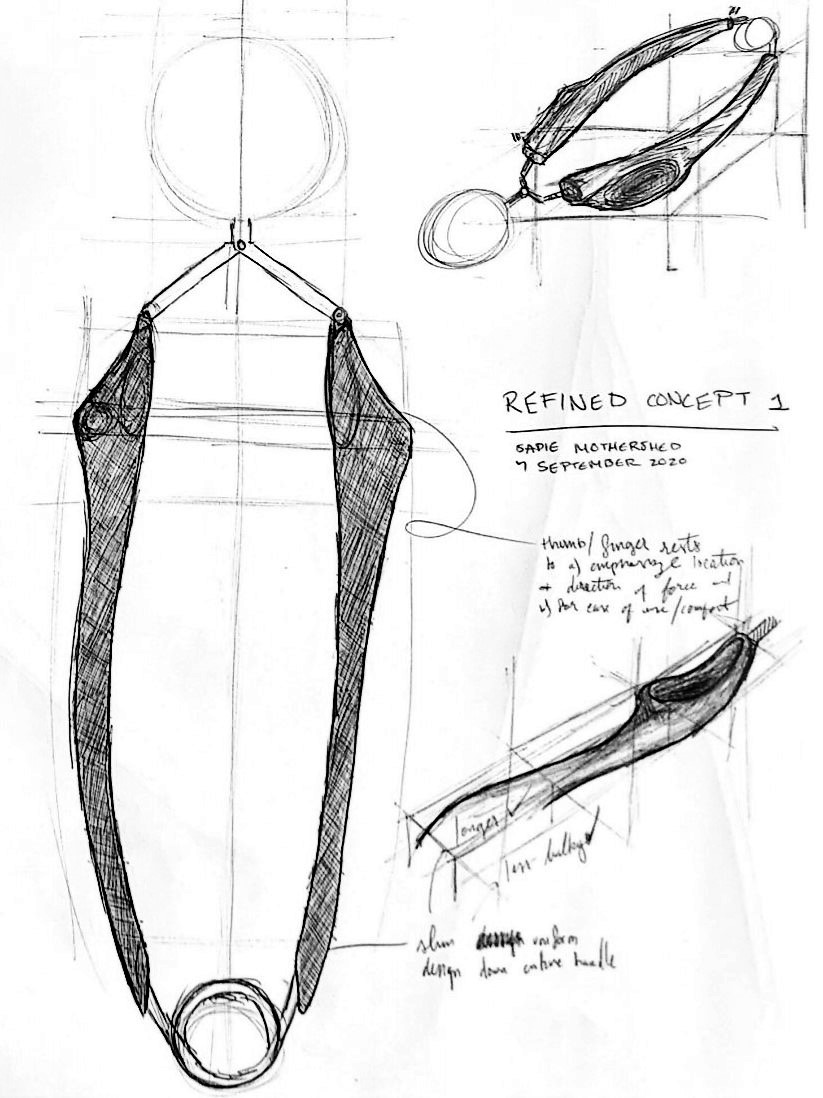 REFINED CONCEPT 1
SADIE MOTHERSHED
7 SEPTEMBER 2020
thumb/finger rests
to a) emphasize location
+ direction of force and
b) for ease of use/comfort
longer ✓
less bulky ✓
slim uniform
design down entire handle